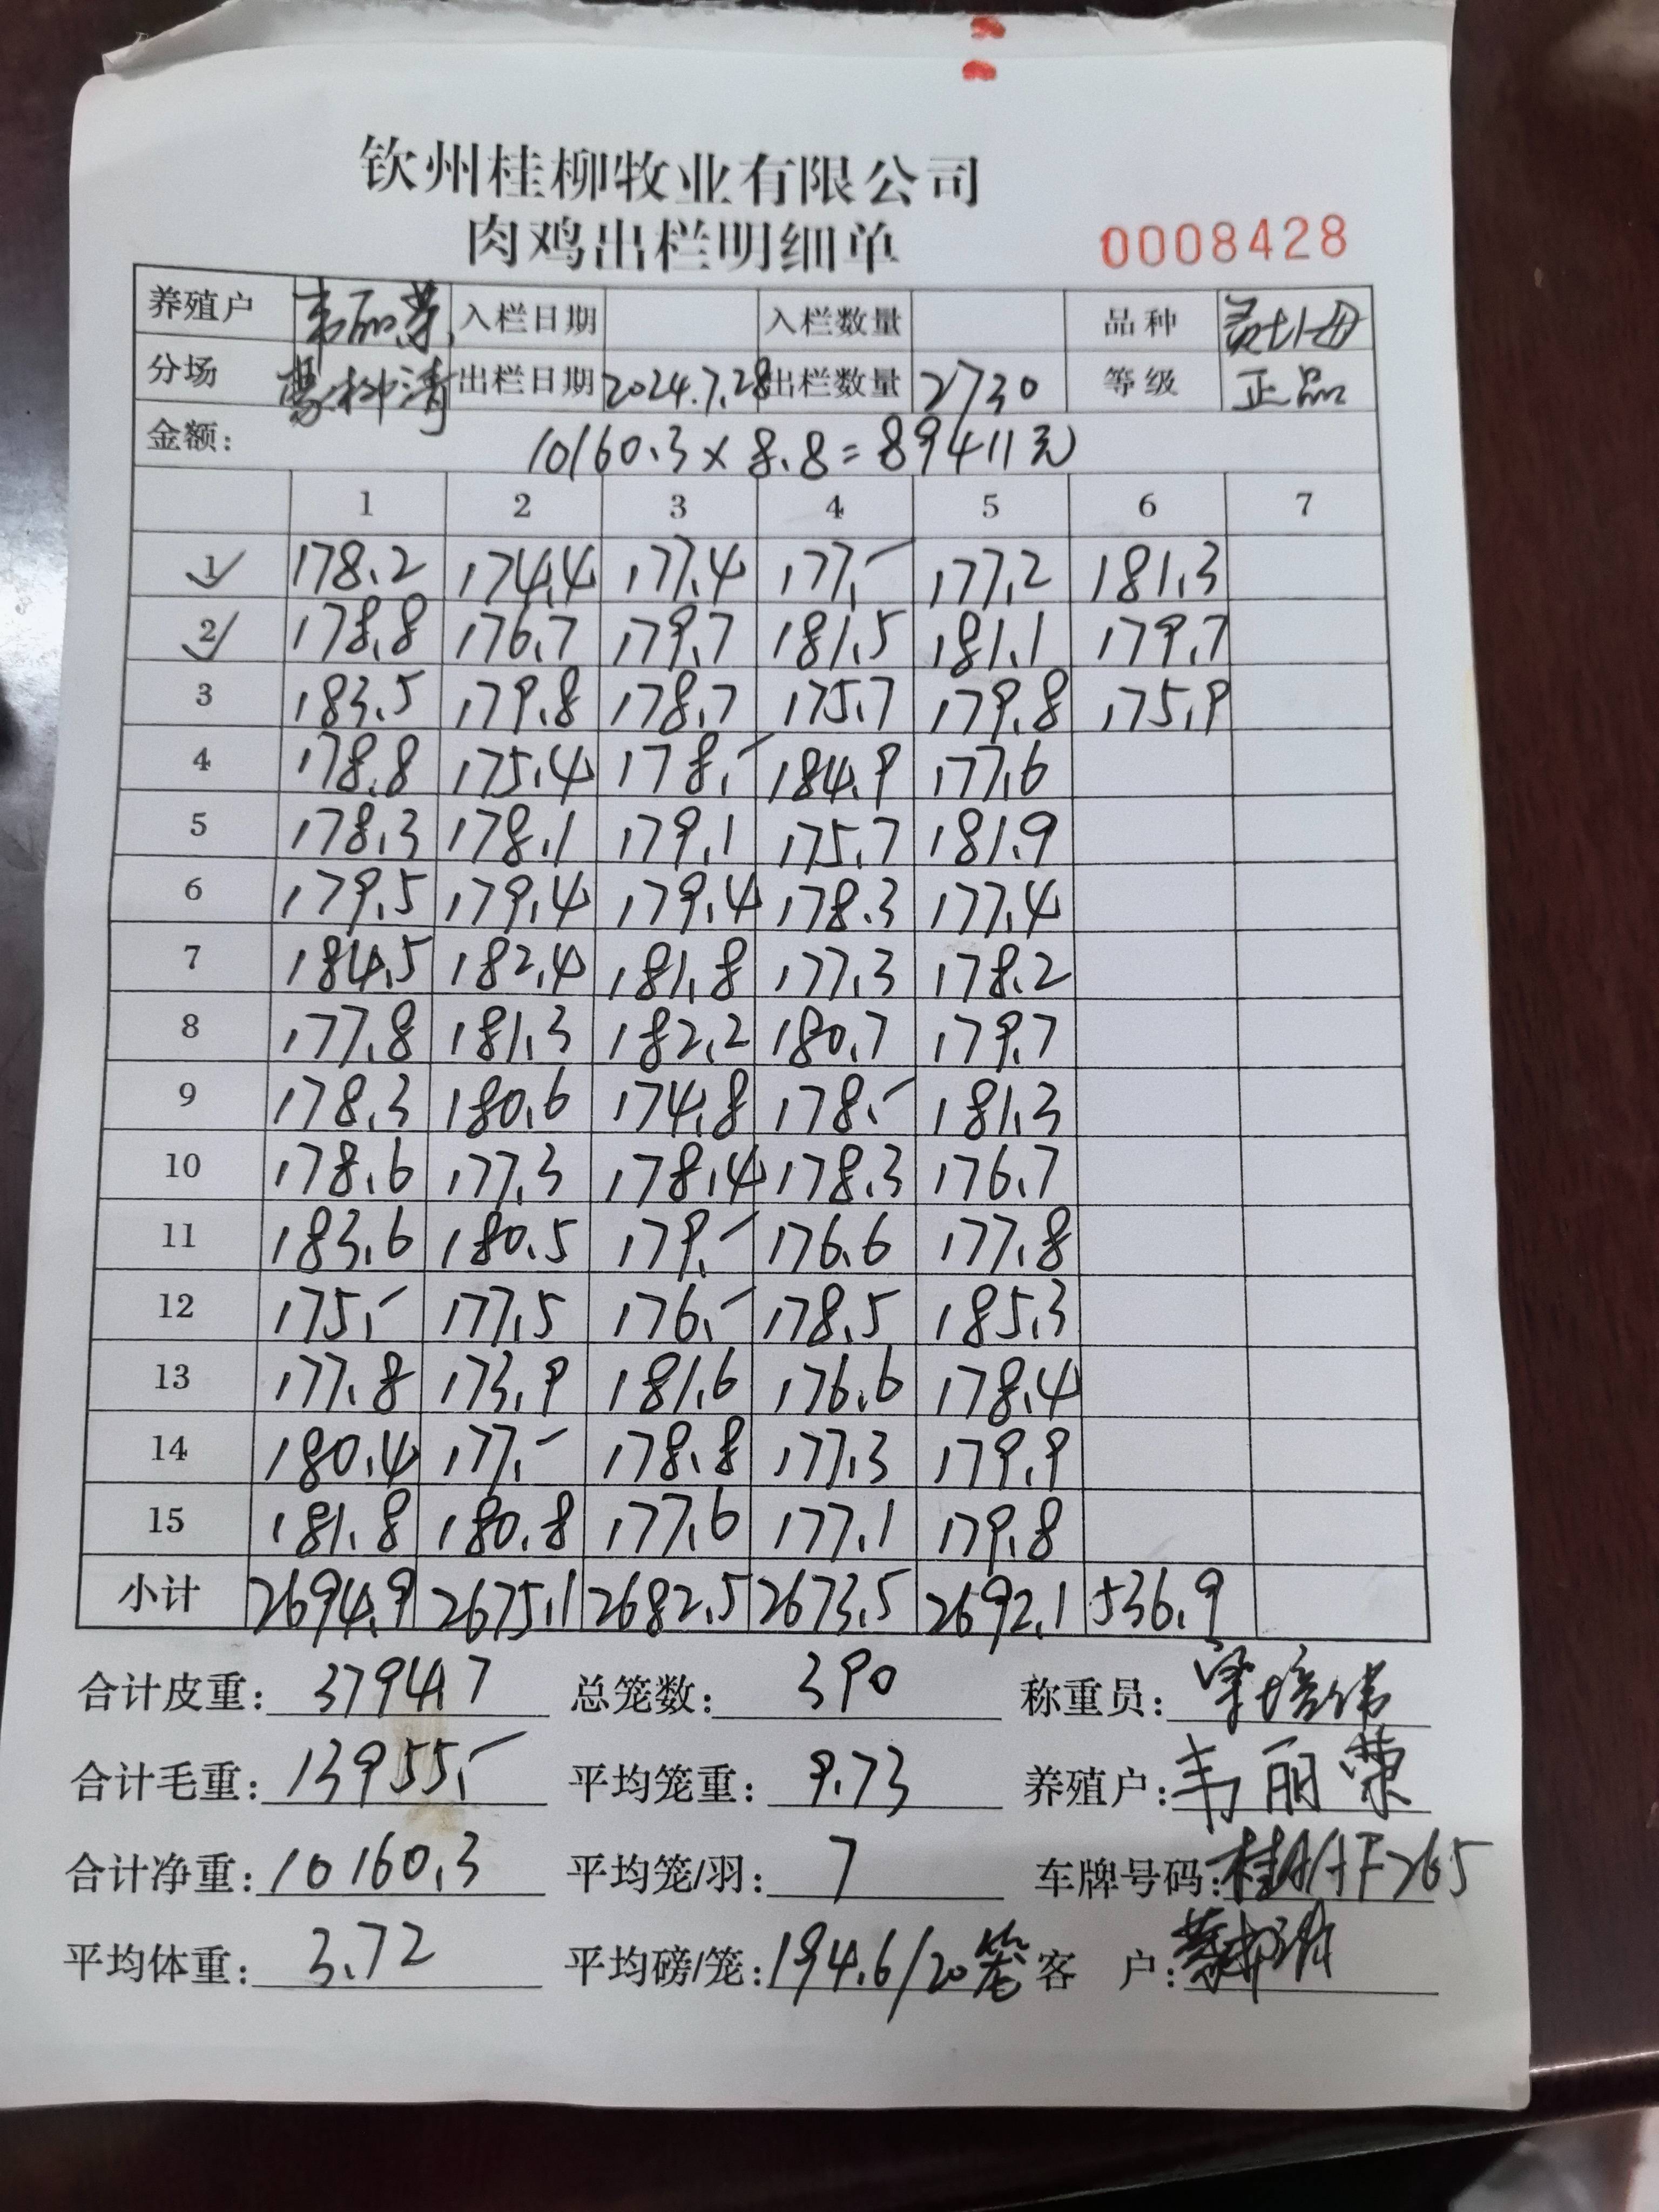 钦州桂柳牧业有限公司
肉鸡出栏明细单 0008428
养殖户 韦丽荣 入栏日期 入栏数量 品种
分场 出栏日期 2024.7.28 出栏数量 2730 等级 正品
金额: 10160.3×8.8=89411元
1 2 3 4 5 6 7
1 178.2 174.4 177.4 177.- 177.2 181.3
2 178.8 176.7 179.7 181.5 181.1 179.7
3 183.5 179.8 178.7 175.7 179.8 175.9
4 178.8 175.4 178.- 184.9 177.6
5 178.3 178.1 179.1 175.7 181.9
6 179.5 179.4 179.4 178.3 177.4
7 184.5 182.4 181.8 177.3 178.2
8 177.8 181.3 182.2 180.7 179.7
9 178.3 180.6 174.8 178.- 181.3
10 178.6 177.3 178.4 178.3 176.7
11 183.6 180.5 179.- 176.6 177.8
12 175.- 177.5 176.- 178.5 185.3
13 177.8 173.9 181.6 176.6 178.4
14 180.4 177.- 178.8 177.3 179.9
15 181.8 180.8 177.6 177.1 179.8
小计 2694.9 2675.1 2682.5 2673.5 2692.1 536.9
合计皮重: 3794.7 总笼数: 390 称重员:
合计毛重: 13955.- 平均笼重: 9.73 养殖户: 韦丽荣
合计净重: 10160.3 平均笼/羽: 7 车牌号码:
平均体重: 3.72 平均磅/笼: 194.6/20笼 客 户: